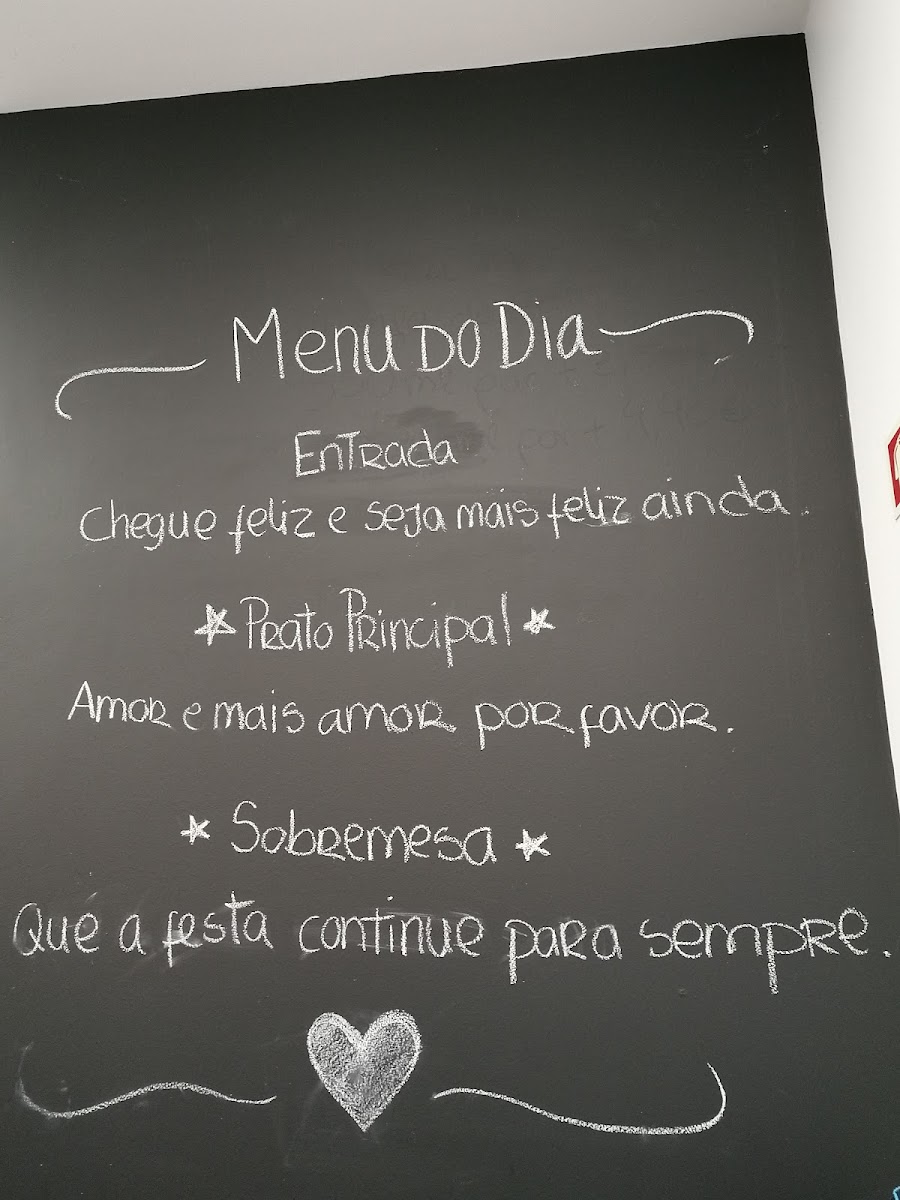 Menu do Dia
Entrada
Chegue feliz e seja mais feliz ainda.
Prato Principal
Amor e mais amor por favor.
Sobremesa
Qué a festa continue para sempre.